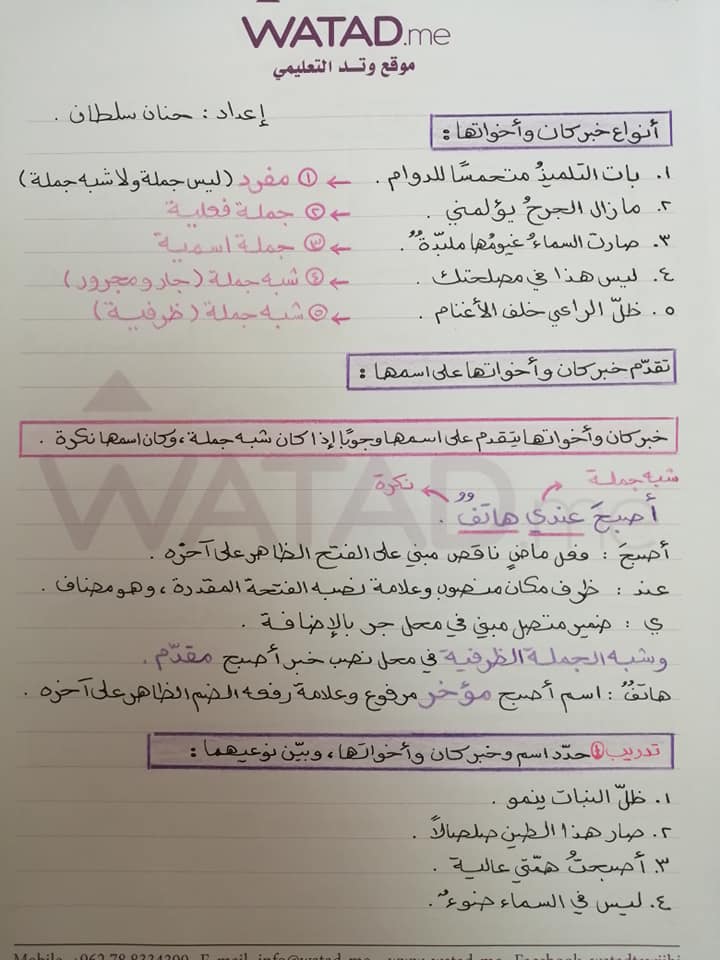 WATAD.me
موقع وتد التعليمي
إعداد : حنان سلطان .
أنواع خبر كان وأخواتها :
١. بات التلميذُ متحمسًا للدوام . ← ① مفرد (ليس جملة ولا شبه جملة)
٢. ما زال الجرحُ يؤلمني . ← ② جملة فعلية
٣. صارت السماءُ غيومُها ملبّدةٌ . ← ③ جملة اسمية
٤. ليس هذا في مصلحتك . ← ④ شبه جملة (جار ومجرور)
٥. ظلّ الراعي خلف الأغنام . ← ⑤ شبه جملة (ظرفية)
تقدّم خبر كان وأخواتها على اسمها :
خبر كان وأخواتها يتقدم على اسمها وجوبًا إذا كان شبه جملة ، وكان اسمها نكرة .
شبه جملة نكرة
أصبحَ عندي هاتفٌ .
أصبحَ : فعل ماضٍ ناقص مبني على الفتح الظاهر على آخره .
عند : ظرف مكان منصوب وعلامة نصبه الفتحة المقدرة ، وهو مضاف .
ي : ضمير متصل مبني في محل جر بالإضافة .
وشبه الجملة الظرفية في محل نصب خبر أصبح مقدّم .
هاتفٌ : اسم أصبح مؤخر مرفوع وعلامة رفعه الضم الظاهر على آخره .
تدريب ① حدّد اسم وخبر كان وأخواتها ، وبيّن نوعيهما :
١. ظلّ النبات ينمو .
٢. صار هذا الطين صلصالاً .
٣. أصبحتْ همّتي عالية .
٤. ليس في السماء ضوءٌ .